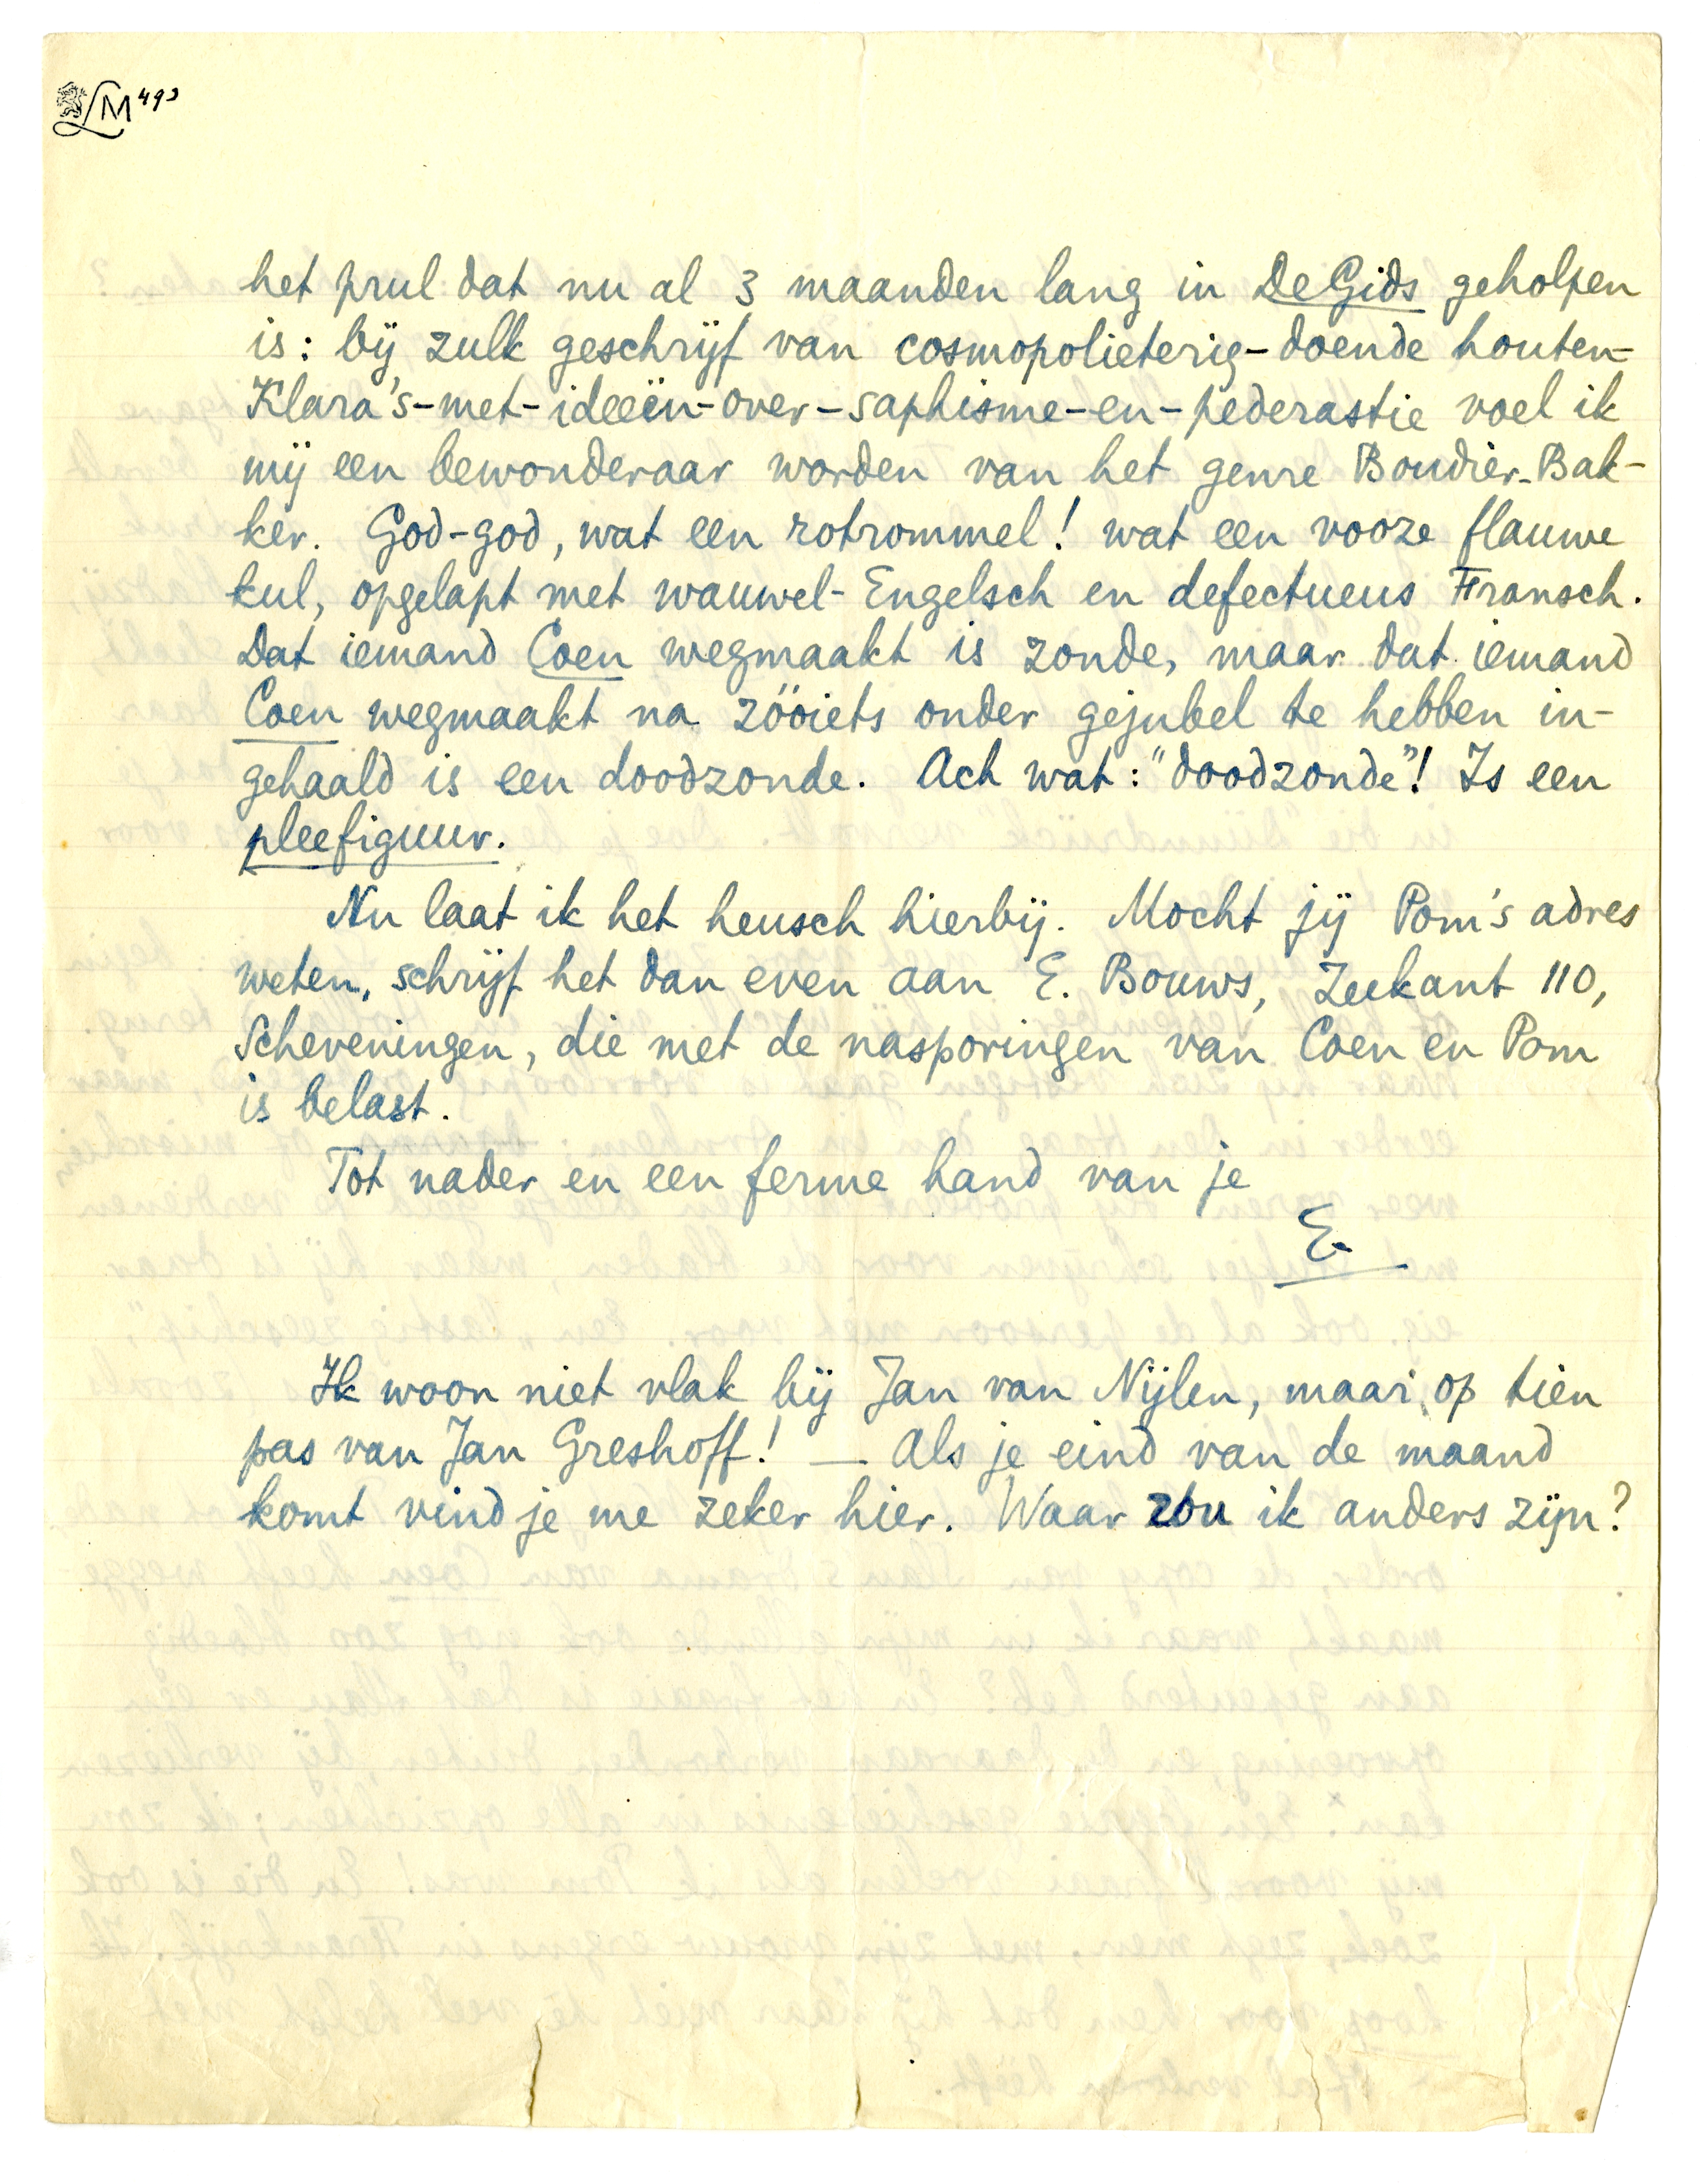 LM 493
het prul dat nu al 3 maanden lang in De Gids geholpen
is: bij zulk geschrijf van cosmopolieterig-doende houten-
Klara's-met-ideeën-over-saphisme-en-pederastie voel ik
mij een bewonderaar worden van het genre Boudier-Bak-
ker. God-god, wat een rotrommel! wat een vooze flauwe
kul, opgelapt met wauwel-Engelsch en defectueus Fransch.
Dat iemand Coen wegmaakt is zonde, maar dat iemand
Coen wegmaakt na zóóiets onder gejubel te hebben in-
gehaald is een doodzonde. Ach wat: "doodzonde"! Is een
pleefiguur.
Nu laat ik het heusch hierbij. Mocht jij Pom's adres
weten, schrijf het dan even aan E. Bouws, Zeekant 110,
Scheveningen, die met de nasporingen van Coen en Pom
is belast.
Tot nader en een ferme hand van je
E.
Ik woon niet vlak bij Jan van Nijlen, maar op tien
pas van Jan Greshoff! — Als je eind van de maand
komt vind je me zeker hier. Waar zou ik anders zijn?